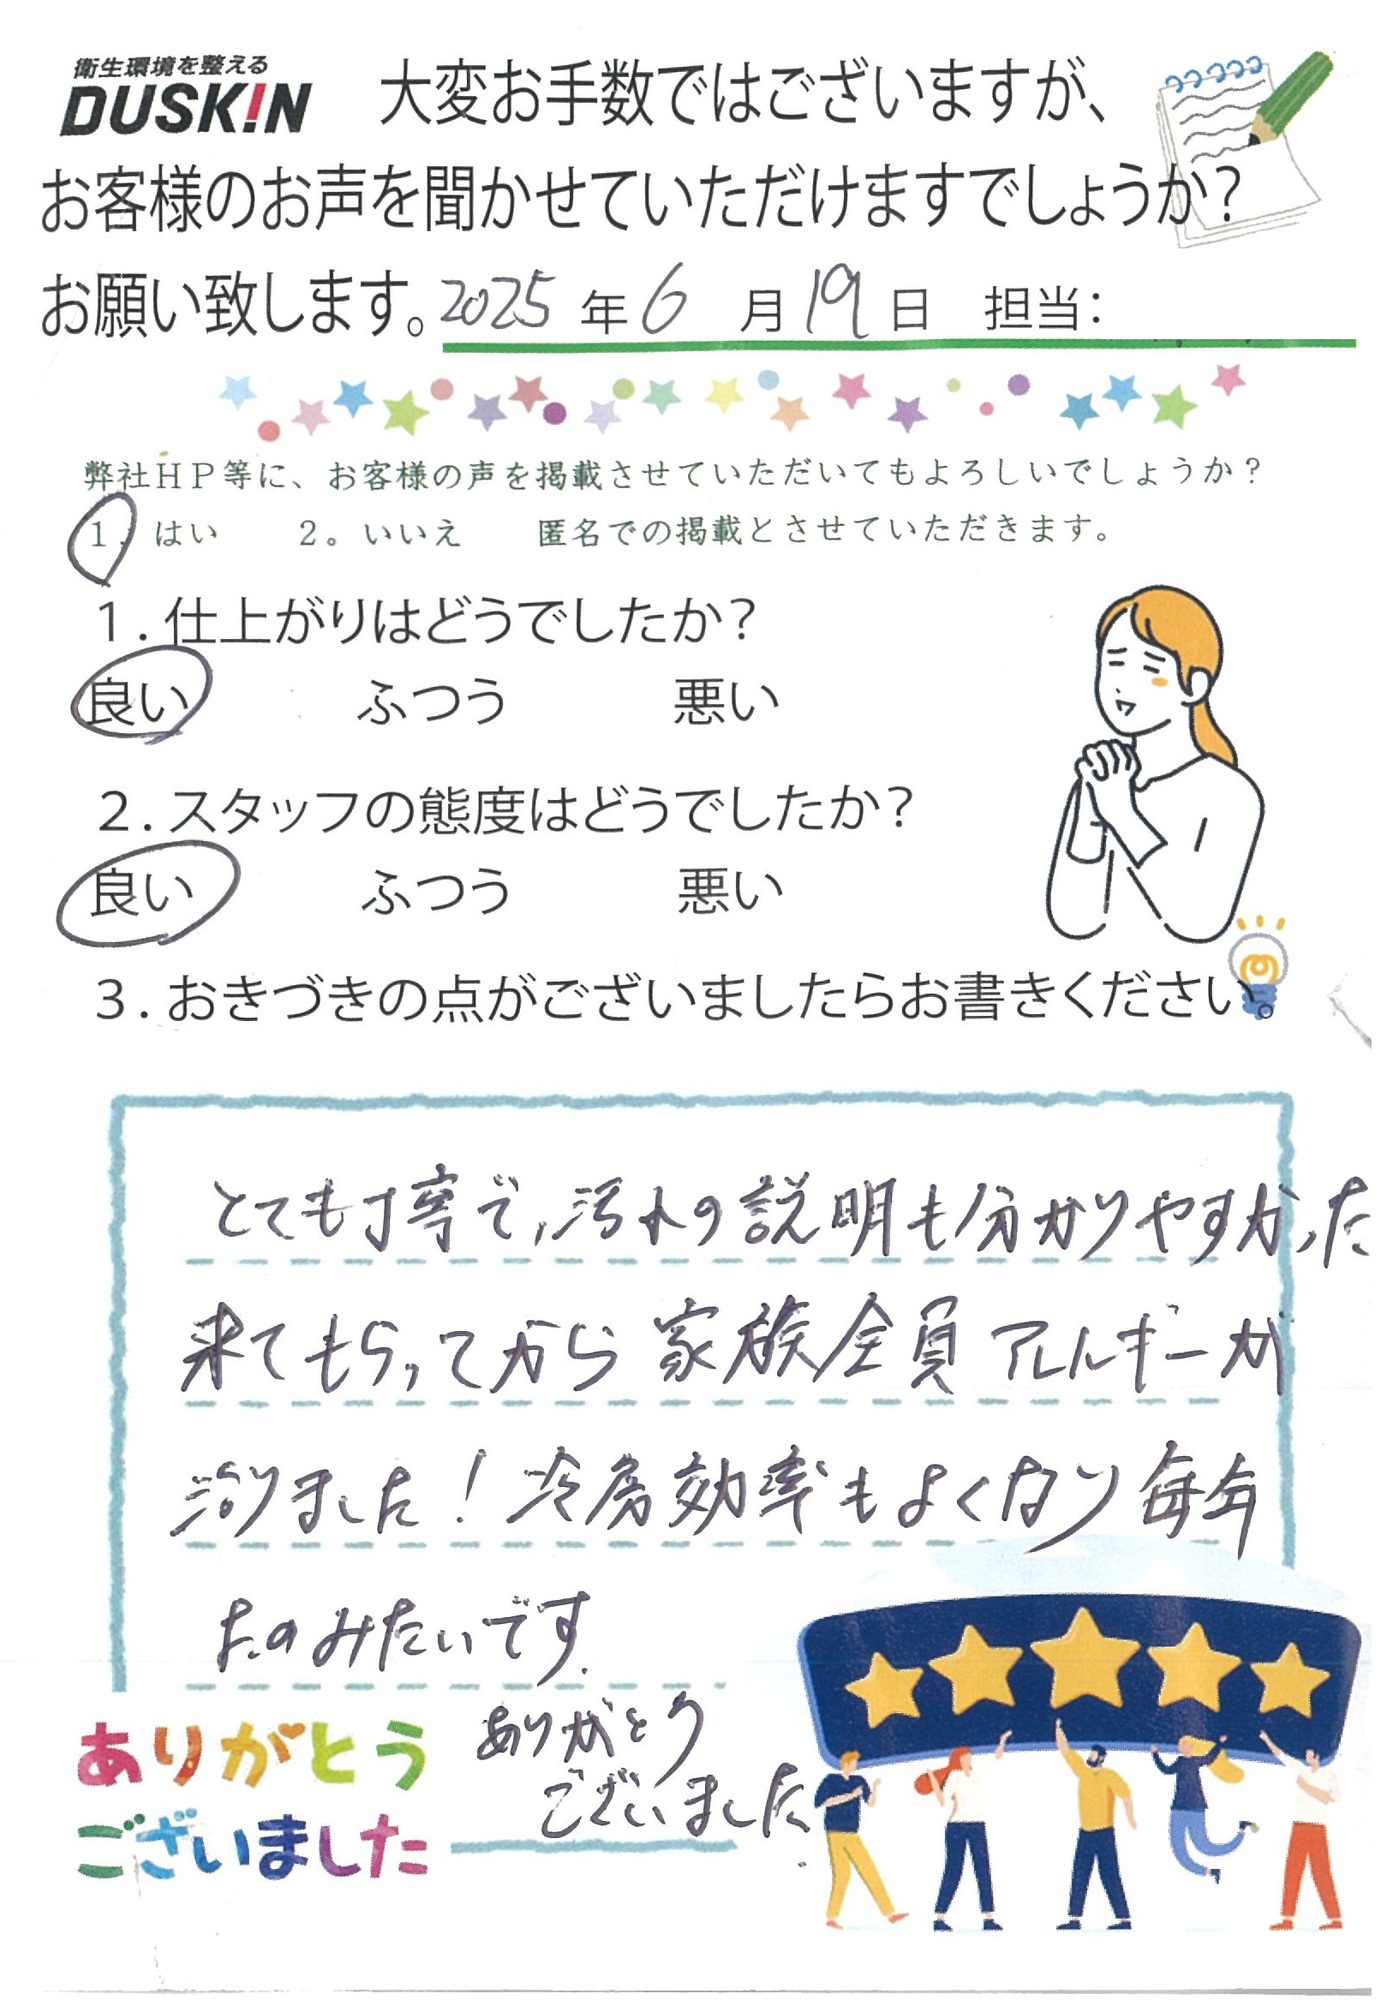 衛生環境を整える
DUSKIN
大変お手数ではございますが、
お客様のお声を聞かせていただけますでしょうか？
お願い致します。2025年6月19日 担当：
弊社ＨＰ等に、お客様の声を掲載させていただいてもよろしいでしょうか？
１．はい ２。いいえ 匿名での掲載とさせていただきます。
１．仕上がりはどうでしたか？
良い ふつう 悪い
２．スタッフの態度はどうでしたか？
良い ふつう 悪い
３．おきづきの点がございましたらお書きください。
とても丁寧で、汚れの説明も分かりやすかった
来てもらってから家族全員アレルギーが
治りました！冷房効率もよくなり毎年
たのみたいです.
ありがとう
ございました
ありがとう
ございました